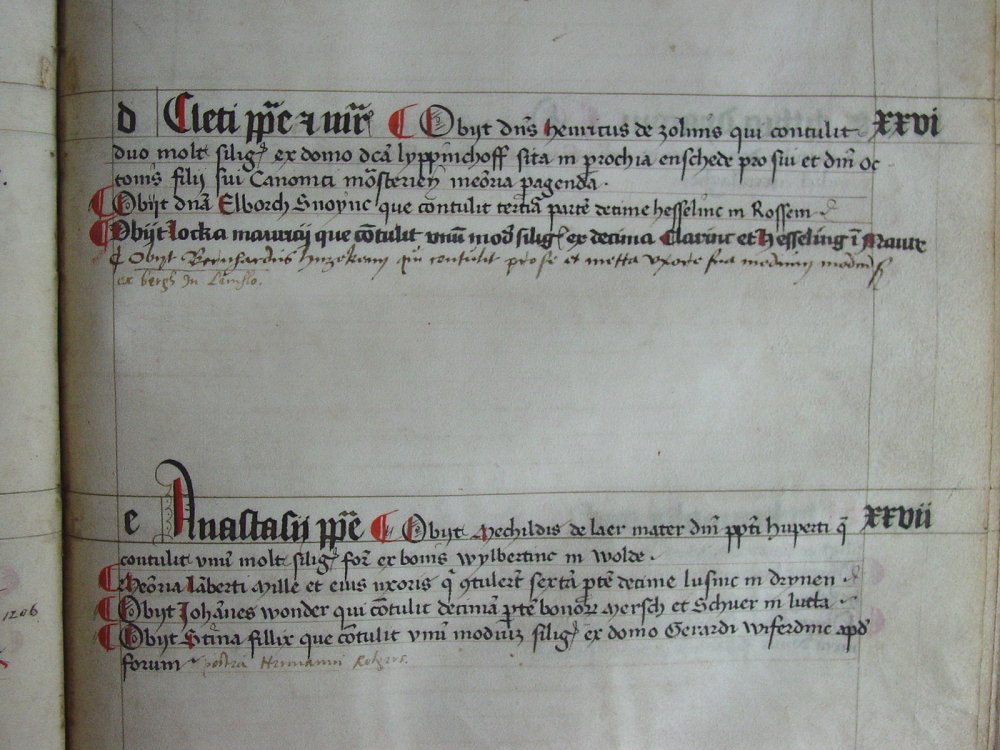 d Cleti ppe et mr Obyt dns Henricus de zolms qui contulit xxvi
duo molt silig ex domo dca lyppinchoff sita in prochia enschede pro sui et dni oc
tonis filij sui Canonici mosterien meoria pagenda.
Obijt dna Elborch Snoync que contulit tertia parte decime hesselinc in Rossem
Obijt Jocka mauricij que cotulit vnu mod silig ex decima Clarinc et Hesseling i
Obijt Bernhardus qui contulit pro se et metta vxore sua medium modium
ex bergh In
e Anastasij ppe Obijt Mechildis de laer mater dni ppti huperti q xxvii
contulit vnu molt silig for ex bonis wylbertinc in wolde.
Meoria lamberti Mille et eius uxoris q gtulert sexta prte decime lusinc in drynen
1206
Obijt Johanes wonder qui cotulit decima prte bonor Mersch et Schuer in lutta
Obijt Stina fillix que cotulit vnu modiu silig ex domo Gerardi wiferdinc apd
forum postea Hermanni